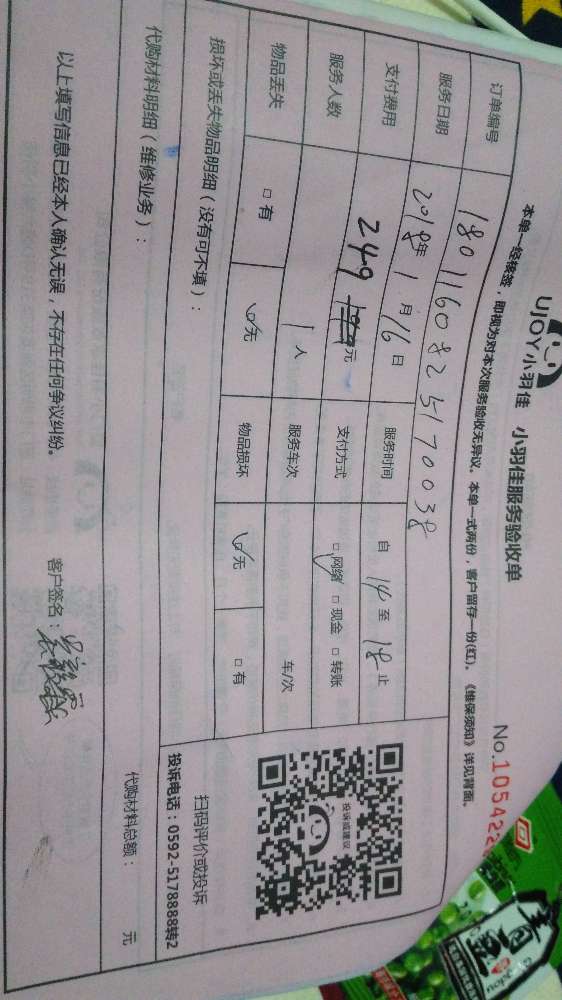 UJOY小羽佳 小羽佳服务验收单
No.105422
本单一经接签，即视为对本次服务验收无异议。本单一式两份，客户留存一份(红)。《维保须知》详见背面。
订单编号 1801160825170038
服务日期 2018年1月16日 服务时间 自 14 至 18 止
支付费用 249 元 支付方式 □网络 □现金 □转账
服务人数 1人 服务车次 车/次
物品丢失 □有 □无 物品损坏 □无 □有
损坏或丢失物品明细（没有可不填）：
投诉或建议
扫码评价或投诉
投诉电话：0592-5178888转2
代购材料明细（维修业务）：
代购材料总额： 元
以上填写信息已经本人确认无误，不存在任何争议纠纷。 客户签名：